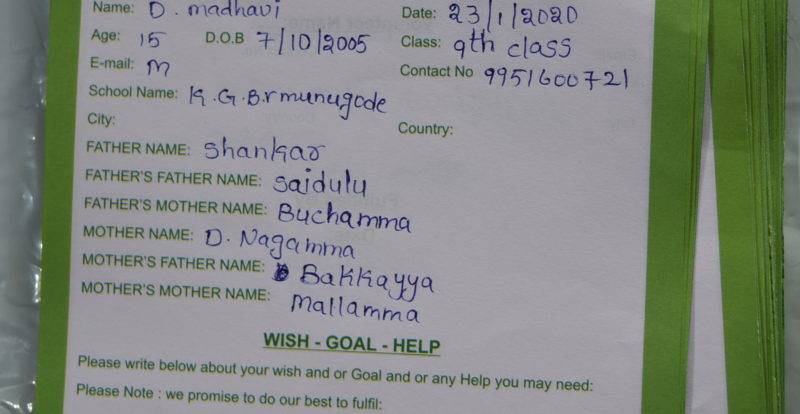 Name: D. madhavi Date: 23/1/2020
Age: 15 D.O.B 7/10/2005 Class: 9th class
E-mail: m Contact No 9951600721
School Name: K.G.B.V munugode
City: Country:
FATHER NAME: Shankar
FATHER'S FATHER NAME: Saidulu
FATHER'S MOTHER NAME: Buchamma
MOTHER NAME: D. Nagamma
MOTHER'S FATHER NAME: Bakkayya
MOTHER'S MOTHER NAME: Mallamma
WISH - GOAL - HELP
Please write below about your wish and or Goal and or any Help you may need:
Please Note : we promise to do our best to fulfil: